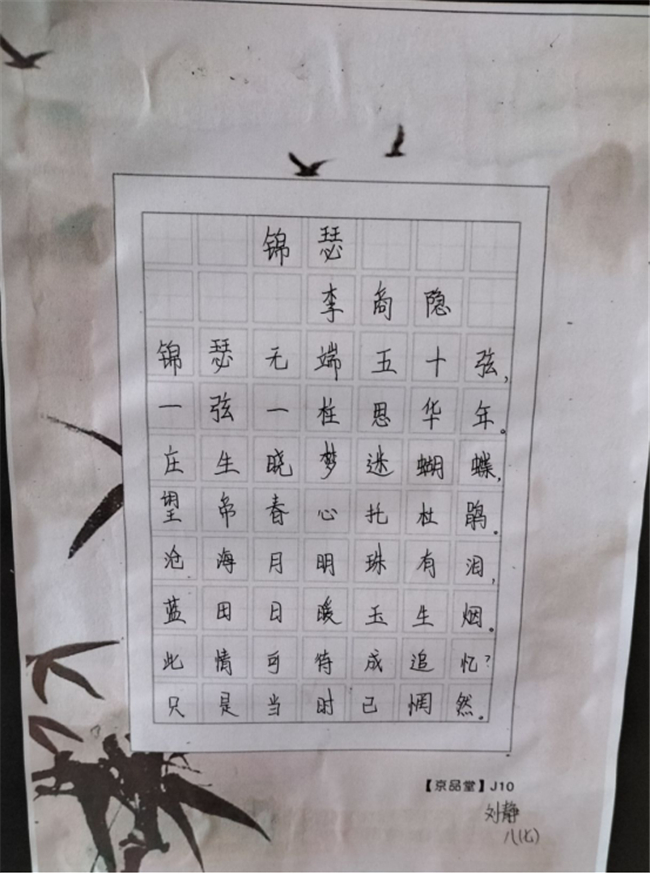 锦瑟
李商隐
锦瑟无端五十弦，
一弦一柱思华年。
庄生晓梦迷蝴蝶，
望帝春心托杜鹃。
沧海月明珠有泪，
蓝田日暖玉生烟。
此情可待成追忆？
只是当时已惘然。
【京品堂】J10
刘静
八(七)